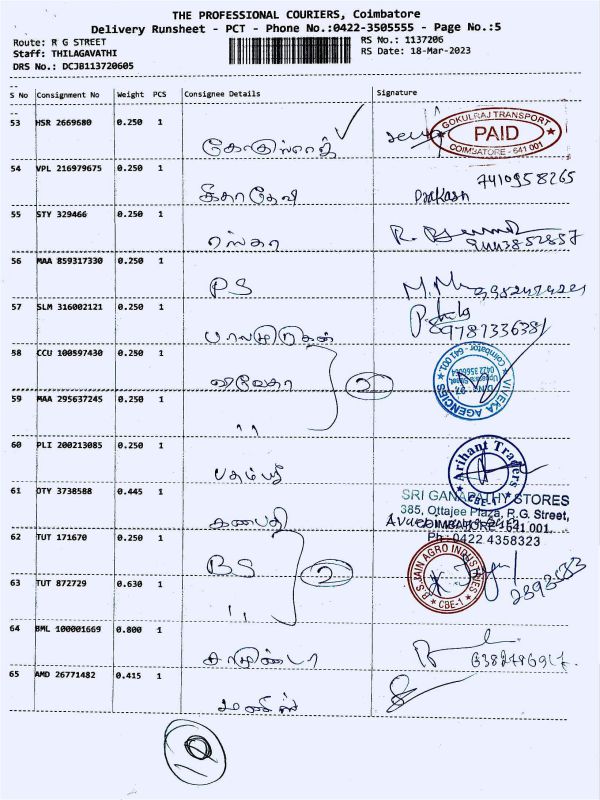 THE PROFESSIONAL COURIERS, Coimbatore
Delivery Runsheet - PCT - Phone No.:0422-3505555 - Page No.:5
Route: R G STREET
RS No.: 1137206
Staff: THILAGAVATHI
RS Date: 18-Mar-2023
DRS No.: DCJB113720605
S No Consignment No Weight PCS Consignee Details Signature
53 HSR 2669680 0.250 1
GOKULRAJ TRANSPORT
PAID
COIMBATORE - 641 001
54 VPL 216979675 0.250 1
ஸ்ரீசாதேவி Prakash 7410958265
55 STY 329466 0.250 1
56 MAA 859317330 0.250 1
PS
57 SLM 316002121 0.250 1
பாலமுருகன் 9787336381
58 CCU 100597430 0.250 1
விவேகா 2
VIVEKA AGENCIES
Coimbatore - 641 001.
59 MAA 295637245 0.250 1
,,
60 PLI 200213085 0.250 1
Arihant Traders
CBE-1
61 OTY 3738588 0.445 1
கணபதி
SRI GANAPATHY STORES
385, Ottajee Plaza, R.G. Street,
COIMBATORE - 641 001.
Ph : 0422 4358323
62 TUT 171670 0.250 1
BS 2
B.S. JAIN AGRO INDUSTRIES
CBE-1
63 TUT 872729 0.630 1
,,
64 BML 100001669 0.800 1
சாமுண்டா
65 AMD 26771482 0.415 1